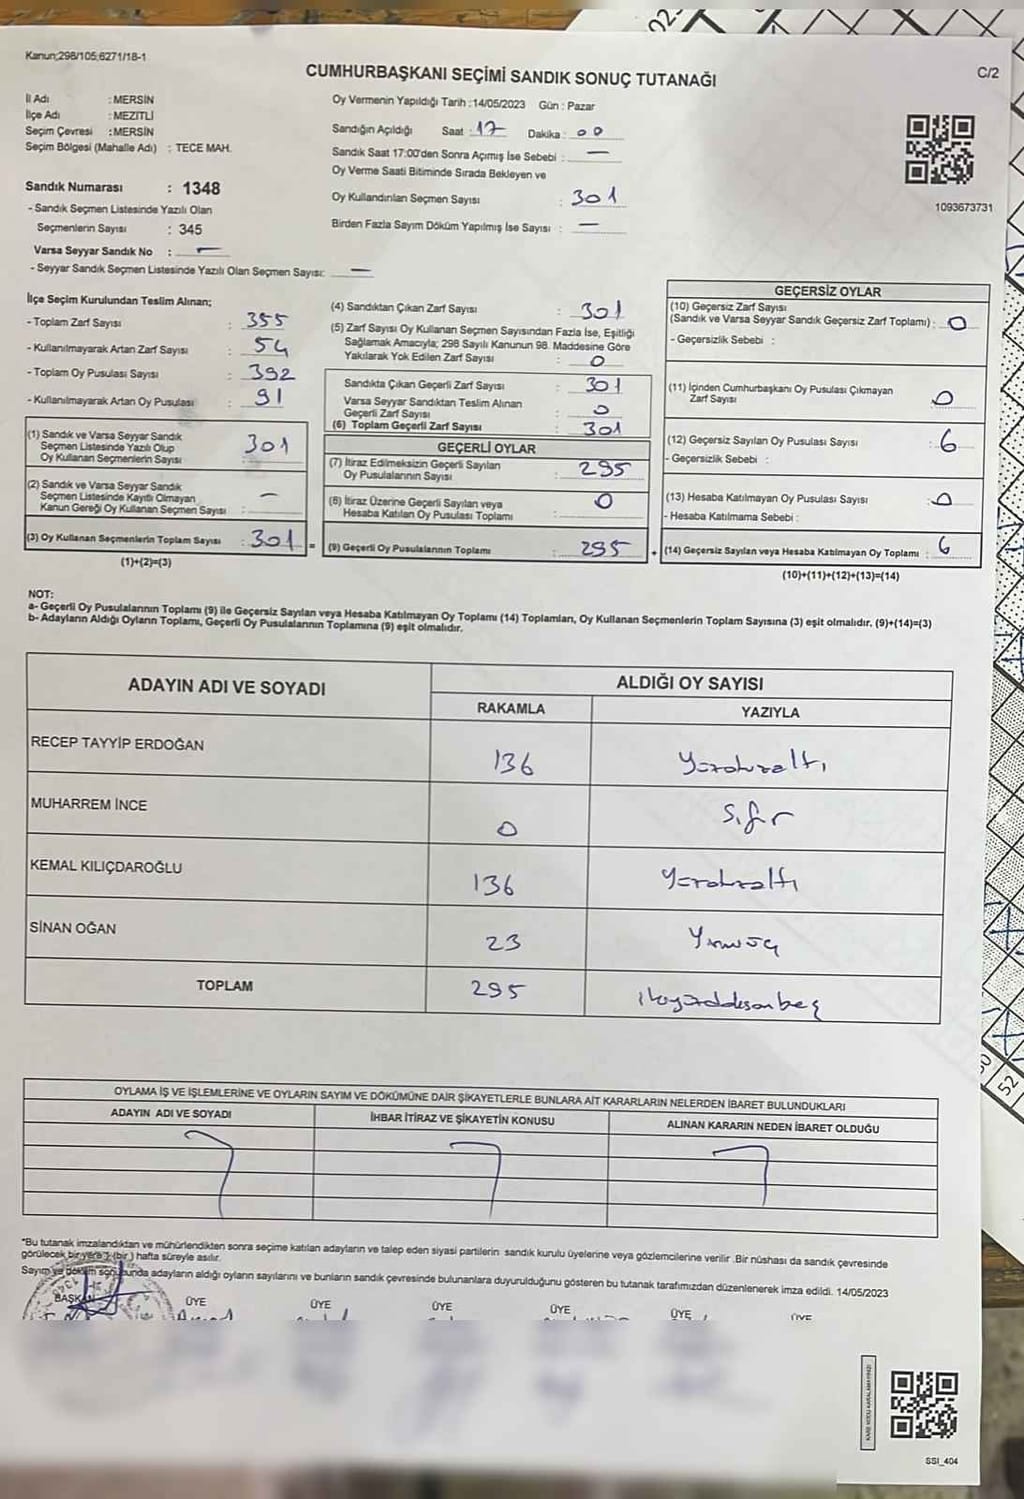 Kanun;298/105;6271/18-1
CUMHURBAŞKANI SEÇİMİ SANDIK SONUÇ TUTANAĞI
C/2
İl Adı : MERSİN
İlçe Adı : MEZİTLİ
Seçim Çevresi : MERSİN
Seçim Bölgesi (Mahalle Adı) : TECE MAH.
Sandık Numarası : 1348
- Sandık Seçmen Listesinde Yazılı Olan
Seçmenlerin Sayısı : 345
Varsa Seyyar Sandık No : —
- Seyyar Sandık Seçmen Listesinde Yazılı Olan Seçmen Sayısı: —
Oy Vermenin Yapıldığı Tarih :14/05/2023 Gün : Pazar
Sandığın Açıldığı Saat : 17 Dakika : 00
Sandık Saat 17:00'den Sonra Açımış İse Sebebi : —
Oy Verme Saati Bitiminde Sırada Bekleyen ve
Oy Kullandırılan Seçmen Sayısı : 301
Birden Fazla Sayım Döküm Yapılmış İse Sayısı : —
1093673731
İlçe Seçim Kurulundan Teslim Alınan;
- Toplam Zarf Sayısı : 355
- Kullanılmayarak Artan Zarf Sayısı : 54
- Toplam Oy Pusulası Sayısı : 392
- Kullanılmayarak Artan Oy Pusulası : 91
(1) Sandık ve Varsa Seyyar Sandık
Seçmen Listesinde Yazılı Olup
Oy Kullanan Seçmenlerin Sayısı : 301
(2) Sandık ve Varsa Seyyar Sandık
Seçmen Listesinde Kayıtlı Olmayan
Kanun Gereği Oy Kullanan Seçmen Sayısı : —
(3) Oy Kullanan Seçmenlerin Toplam Sayısı : 301 =
(1)+(2)=(3)
(4) Sandıktan Çıkan Zarf Sayısı : 301
(5) Zarf Sayısı Oy Kullanan Seçmen Sayısından Fazla İse, Eşitliği
Sağlamak Amacıyla; 298 Sayılı Kanunun 98. Maddesine Göre
Yakılarak Yok Edilen Zarf Sayısı : 0
Sandıkta Çıkan Geçerli Zarf Sayısı : 301
Varsa Seyyar Sandıktan Teslim Alınan
Geçerli Zarf Sayısı : 0
(6) Toplam Geçerli Zarf Sayısı : 301
GEÇERLİ OYLAR
(7) İtiraz Edilmeksizin Geçerli Sayılan
Oy Pusulalarının Sayısı : 295
(8) İtiraz Üzerine Geçerli Sayılan veya
Hesaba Katılan Oy Pusulası Toplamı : 0
(9) Geçerli Oy Pusulalarının Toplamı : 295 +
GEÇERSİZ OYLAR
(10) Geçersiz Zarf Sayısı
(Sandık ve Varsa Seyyar Sandık Geçersiz Zarf Toplamı) : 0
- Geçersizlik Sebebi :
(11) İçinden Cumhurbaşkanı Oy Pusulası Çıkmayan
Zarf Sayısı : 0
(12) Geçersiz Sayılan Oy Pusulası Sayısı : 6
- Geçersizlik Sebebi :
(13) Hesaba Katılmayan Oy Pusulası Sayısı : 0
- Hesaba Katılmama Sebebi :
(14) Geçersiz Sayılan veya Hesaba Katılmayan Oy Toplamı : 6
(10)+(11)+(12)+(13)=(14)
NOT:
a- Geçerli Oy Pusulalarının Toplamı (9) ile Geçersiz Sayılan veya Hesaba Katılmayan Oy Toplamı (14) Toplamları, Oy Kullanan Seçmenlerin Toplam Sayısına (3) eşit olmalıdır. (9)+(14)=(3)
b- Adayların Aldığı Oyların Toplamı, Geçerli Oy Pusulalarının Toplamına (9) eşit olmalıdır.
ADAYIN ADI VE SOYADI ALDIĞI OY SAYISI
RAKAMLA YAZIYLA
RECEP TAYYİP ERDOĞAN 136 Yüzotuzaltı
MUHARREM İNCE 0 Sıfır
KEMAL KILIÇDAROĞLU 136 Yüzotuzaltı
SİNAN OĞAN 23 Yirmiüç
TOPLAM 295 ikiyüzdoksanbeş
OYLAMA İŞ VE İŞLEMLERİNE VE OYLARIN SAYIM VE DÖKÜMÜNE DAİR ŞİKAYETLERLE BUNLARA AİT KARARLARIN NELERDEN İBARET BULUNDUKLARI
ADAYIN ADI VE SOYADI İHBAR İTİRAZ VE ŞİKAYETİN KONUSU ALINAN KARARIN NEDEN İBARET OLDUĞU
*Bu tutanak imzalandıktan ve mühürlendikten sonra seçime katılan adayların ve talep eden siyasi partilerin sandık kurulu üyelerine veya gözlemcilerine verilir .Bir nüshası da sandık çevresinde
görülecek bir yere 1 (bir ) hafta süreyle asılır.
Sayım ve döküm sonucunda adayların aldığı oyların sayılarını ve bunların sandık çevresinde bulunanlara duyurulduğunu gösteren bu tutanak tarafımızdan düzenlenerek imza edildi. 14/05/2023
BAŞKAN ÜYE ÜYE ÜYE ÜYE ÜYE ÜYE
SSI_404
52